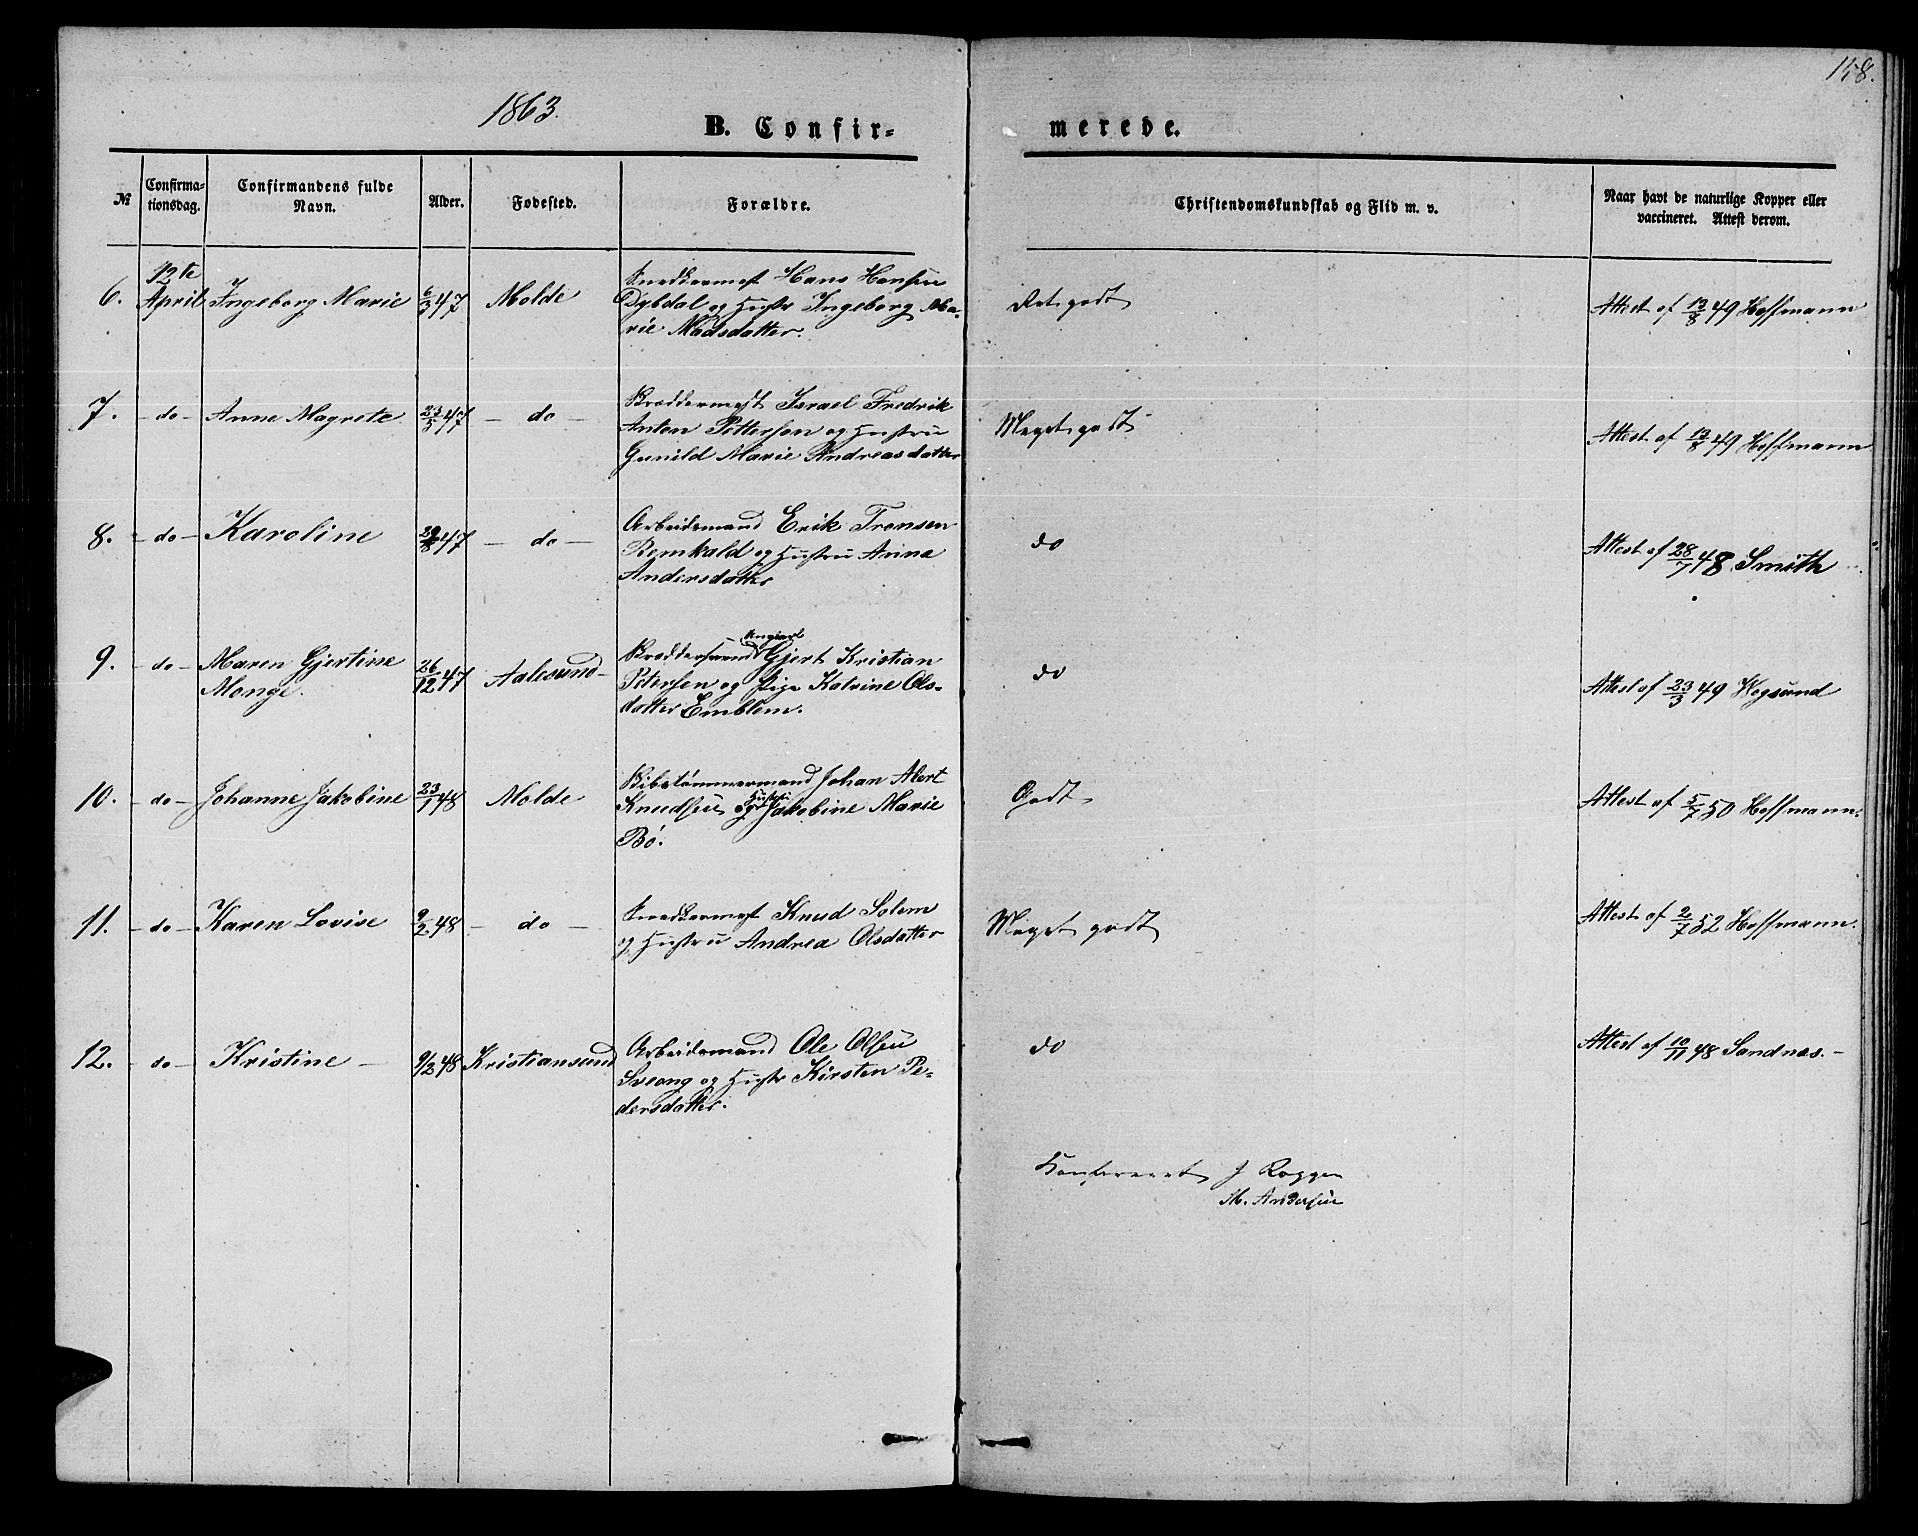 158.
1863.
B. Confir=
merede.
№
Confirma=
tionsdag.
Confirmandens fulde
Navn.
Alder.
Fødested.
Forældre.
Christendomskundskab og Flid m. v.
Naar havt de naturlige Kopper eller
vaccineret. Attest derom.
6. 12te April Ingeborg Marie 6/3 47 Molde
Snedkermest Hans Hansen
Dybdal og Hustr Ingeborg Ma-
rie Madsdatter.
Ret godt
Attest af 13/8 49 Hoffmann
7. - do - Anne Magrete 23/5 47 - do -
Israel Fredrik
Anton Pettersen og Hustru
Gunild Marie Andreasdatter
Meget godt
Attest af 13/8 49 Hoffmann
8. - do - Karoline 47 - do -
Arbeidsmand Erik Tronsen
Remkald og Hustru Anna
Andersdatter
do
Attest af 28/7 48 Smith
9. - do - Maren Gjertine
Monge.
26/12 47 Aalesund
Ungkarl
Gjert Kristian
Petersen og Pige Katrine Ols-
datter Emblem.
do
Attest af 23/3 49 Wegsund
10. - do - Johanne Jakobine 23/1 48 Molde
Skibstømmermand Johan Abert
Hustru
Knudsen og Jakobine Marie
Bø.
Godt
Attest af 5/7 50 Hoffmann.
11. - do - Karen Lovise 9/2 48 - do -
Snedkermest Knud Solem
og Hustru Andrea Olsdatter
Meget godt
Attest af 2/7 52 Hoffmann.
12. - do - Kristine - 9/2 48 Kristiansund
Arbeidsmand Ole Olsen
Sveang og Hustr Kirsten Pe-
dersdatter.
do
Attest af 10/11 48 Sandnes. -
Konfereret J Roggen
M. Andersen